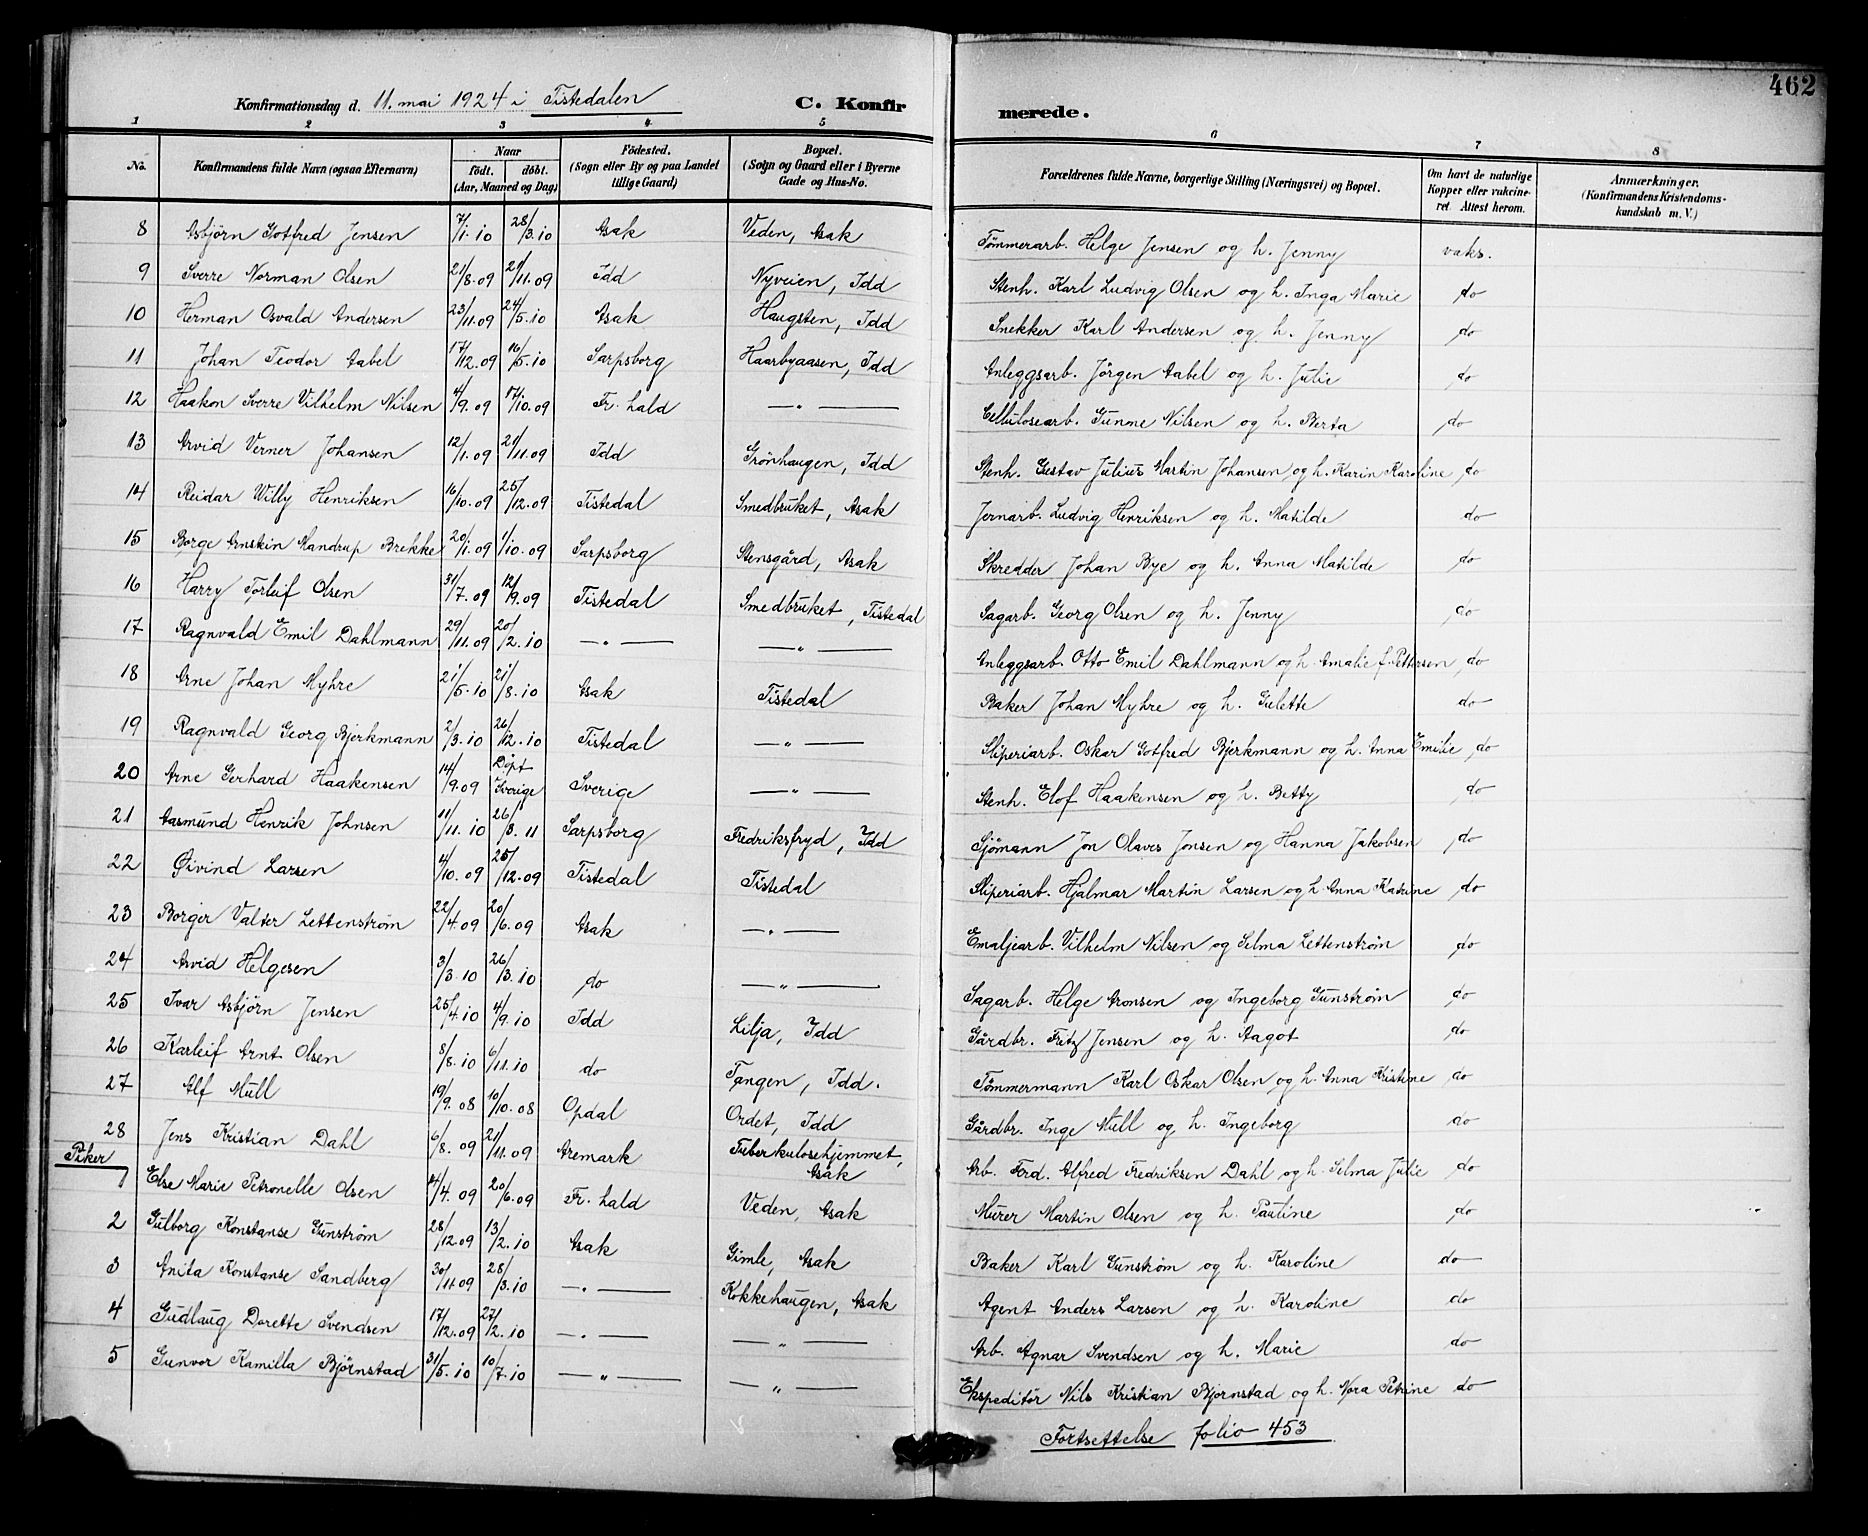 462
Konfirmationsdag d. 11. mai 1924 i Tistedalen C. Konfirmerede.
1 2 3 4 5 6 7 8
No. Konfirmandens fulde Navn (ogsaa Efternavn) Naar født. døbt. (Aar, Maaned og Dag) Fødested. (Sogn eller By og paa Landet tillige Gaard) Bopæl. (Sogn og Gaard eller i Byerne Gade og Hus-No. Forældrenes fulde Navne, borgerlige Stilling (Næringsvei) og Bopæl. Om havt de naturlige Kopper eller vakcineret. Attest herom. Anmærkninger. (Konfirmandens Kristendomskundskab m. V.)
8 Asbjörn Gotfred Jensen 7/1.10 28/3.10 Asak Veden, Asak Tömmerarb. Helge Jensen og h. Jenny vaks.
9 Sverre Norman Olsen 21/8.09 21/11.09 Idd Nyveien, Idd Stenh. Karl Ludvig Olsen og h. Inga Marie do
10 Herman Osvald Andersen 23/11.09 24/5.10 Asak Haugsten, Idd Snekker Karl Andersen og h. Jenny do
11 Johan Teodor Aabel 17/12.09 16/5.10 Sarpsborg Haarbyaasen, Idd Anleggsarb. Jörgen Aabel og h. Julie do
12 Haakon Sverre Vilhelm Nilsen 4/9.09 17/10.09 Fr. hald — " — Cellulosearb. Gunne Nilsen og h. Berta do
13 Arvid Verner Johansen 12/1.09 21/11.09 Idd Grönhaugen, Idd Stenh. Gustav Julius Martin Johansen og h. Karin Karoline do
14 Reidar Willy Henriksen 16/10.09 25/12.09 Tistedal Smedbruket, Asak Jernarb. Ludvig Henriksen og h. Matilde do
15 Borge Arnstin Mandrup Brekke 20/1.09 1/10.09 Sarpsborg Stensgård, Asak Skredder Johan Bye og h. Anna Matilde do
16 Harry Torleif Olsen 31/7.09 12/9.09 Tistedal Smedbruket, Tistedal Sagarb. Georg Olsen og h. Jenny do
17 Ragnvald Emil Dahlmann 29/11.09 20/2.10 — " — — " — Anleggsarb. Otto Emil Dahlmann og h. Amalie f. Pettersen do
18 Arne Johan Myhre 21/5.10 21/8.10 Asak Tistedal Baker Johan Myhre og h. Gulette do
19 Ragnvald Georg Bjerkmann 2/3.10 26/12.10 Tistedal — " — Sliperiarb. Oskar Gotfred Bjerkmann og h. Anna Emilie do
20 Arne Gerhard Haakensen 14/9.09 Döpt Sverige Sverige — " — Stenh. Elof Haakensen og h. Betty do
21 Aasmund Henrik Johnsen 11/11.10 26/3.11 Sarpsborg Fredriksfryd, Idd Sjömann Jon Olaves Jonsen og Hanna Jakobsen do
22 Øivind Larsen 4/10.09 25/12.09 Tistedal Tistedal Sliperiarb. Hjalmar Martin Larsen og h. Anna Katrine do
23 Borger Valter Lettenstrøm 22/4.09 20/6.09 Asak — " — Emaljearb. Vilhelm Nilsen og Selma Lettenstrøm do
24 Arvid Helgesen 3/3.10 26/3.10 do — " — Sagarb. Helge Aronsen og Ingeborg Gunstrøm do
25 Ivar Asbjörn Jensen 25/4.10 4/9.10 Idd Lilja, Idd Gårdbr. Fritz Jensen og h. Aagot do
26 Karleif Arnt Olsen 8/8.10 6/11.10 do Tangen, Idd. Tömmermann Karl Oskar Olsen og h. Anna Kristine do
27 Alf Mull 19/9.08 10/10.08 Opdal Ordet, Idd Gårdbr. Inge Mull og h. Ingeborg do
28 Jens Kristian Dahl 6/8.09 21/11.09 Aremark Tuberkulosehjemmet, Asak Arb. Ferd. Alfred Fredriksen Dahl og h. Selma Julie do
Piker
1 Else Marie Petronelle Olsen 4/4.09 20/6.09 Fr. hald Veden, Asak Murer Martin Olsen og h. Pauline do
2 Gulborg Konstanse Gunstrøm 28/12.09 13/2.10 Asak Gimle, Asak Baker Karl Gunstrøm og h. Karoline do
3 Anita Konstanse Sandberg 30/11.09 28/3.10 — " — Kokkehaugen, Asak Agent Anders Larsen og h. Karoline do
4 Gudlaug Dorette Svendsen 17/12.09 27/2.10 — " — — " — Arb. Agnar Svendsen og h. Marie do
5 Gunvor Kamilla Björnstad 31/5.10 10/7.10 — " — — " — Ekspeditör Nils Kristian Bjornstad og h. Nora Petrine do
Fortsettelse folio 453